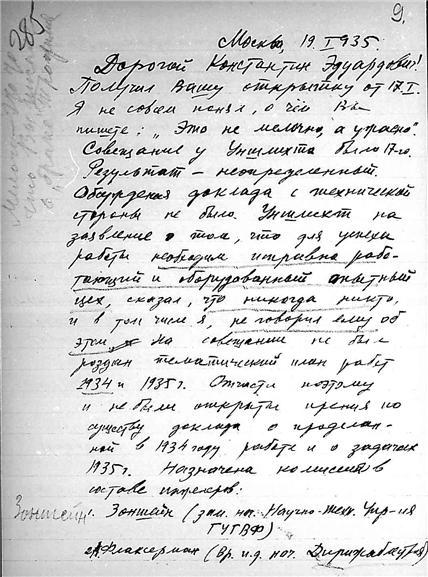 9.
285
Москва, 19.I.1935.
Дорогой Константин Эдуардович!
Получил Вашу открытку от 17.I.
Я не совсем понял, о чём Вы
пишете: „Это не мелочно, а ужасно".
Совещание у Уншлихта было 17-го.
Результат — неопределенный.
Обсуждения доклада с технической
стороны не было. Уншлихт на
заявление о том, что для успеха
работы необходим исправно рабо-
тающий и оборудованный опытный
цех, сказал, что никогда никто,
и в том числе я, не говорил ему об
этом. На совещании не был
роздан тематический план работ
1934 и 1935 г. Отчасти поэтому
и не были открыты прения по
существу доклада о проделан-
ной в 1934 году работе и о задачах
1935 г. Назначена комиссия в
составе инженеров:
Зонштейн
1. Зонштейн (зам. нач. Научно-техн. Упр-ия
ГУГВФ)
Флаксерман (Вр. и.д. нач.